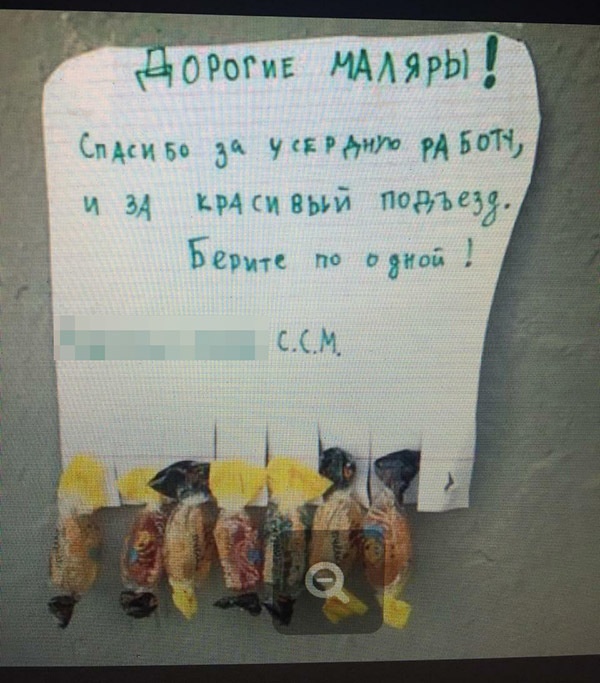 Дорогие маляры!
Спасибо за усердную работу,
и за красивый подъезд.
Берите по одной!
С.С.М.